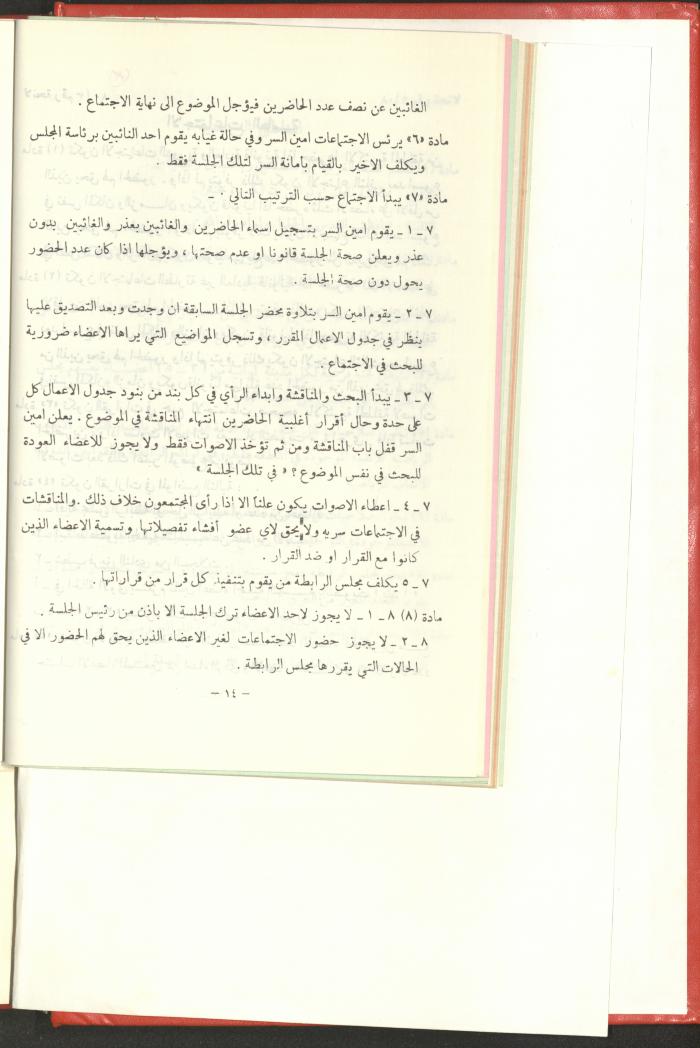 الغائبين عن نصف عدد الحاضرين فيؤجل الموضوع الى نهاية الاجتماع .
مادة «٦» يرئس الاجتماعات امين السر وفي حالة غيابه يقوم احد النائبين برئاسة المجلس
ويكلف الاخير بالقيام بأمانة السر لتلك الجلسة فقط .
مادة «٧» يبدأ الاجتماع حسب الترتيب التالي . -
٧ ـ ١ ـ يقوم امين السر بتسجيل اسماء الحاضرين والغائبين بعذر والغائبين بدون
عذر ويعلن صحة الجلسة قانونا او عدم صحتها ، ويؤجلها اذا كان عدد الحضور
يحول دون صحة الجلسة .
٧ ـ ٢ ـ يقوم امين السر بتلاوة محضر الجلسة السابقة ان وجدت وبعد التصديق عليها
ينظر في جدول الاعمال المقرر ، وتسجل المواضيع التي يراها الاعضاء ضرورية
للبحث في الاجتماع .
٧ ـ ٣ ـ يبدأ البحث والمناقشة وابداء الرأي في كل بند من بنود جدول الاعمال كل
على حدة وحال أقرار أغلبية الحاضرين انتهاء المناقشة في الموضوع . يعلن امين
السر قفل باب المناقشة ومن ثم تؤخذ الاصوات فقط ولا يجوز للاعضاء العودة
للبحث في نفس الموضوع ؟ « في تلك الجلسة »
٧ ـ ٤ ـ اعطاء الاصوات يكون علناً الا اذا رأى المجتمعون خلاف ذلك . والمناقشات
في الاجتماعات سريه ولا يحق لاي عضو أفشاء تفصيلاتها وتسمية الاعضاء الذين
كانوا مع القرار او ضد القرار .
٧ ـ ٥ يكلف مجلس الرابطة من يقوم بتنفيذ كل قرار من قراراتها .
مادة (٨) ٨ ـ ١ ـ لا يجوز لاحد الاعضاء ترك الجلسة الا باذن من رئيس الجلسة .
٨ ـ ٢ ـ لا يجوز حضور الاجتماعات لغير الاعضاء الذين يحق لهم الحضور الا في
الحالات التي يقررها مجلس الرابطة .
– ١٤ –